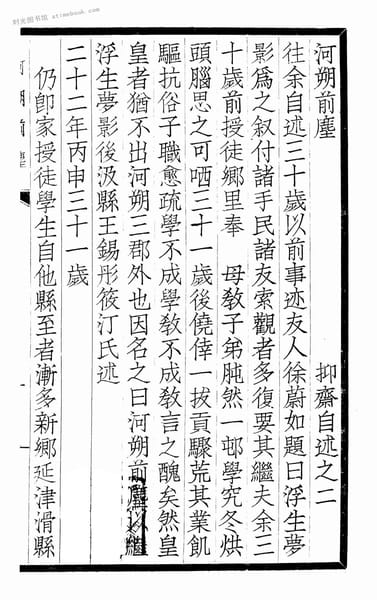 时光图书馆 xtimebook.com
河朔前塵　抑齋自述之二
往余自述三十歲以前事迹友人徐蔚如題曰浮生夢
影爲之叙付諸手民諸友索觀者多復要其繼夫余三
十歲前授徒鄉里奉　母教子弟肫然一邨學究冬烘
頭腦思之可哂三十一歲後僥倖一拔貢驟荒其業飢
驅抗俗子職愈疏學不成學教不成教言之醜矣然皇
皇者猶不出河朔三郡外也因名之曰河朔前塵以繼
浮生夢影後汲縣王錫彤筱汀氏述
二十二年丙申三十一歲
仍卽家授徒學生自他縣至者漸多新鄉延津滑縣
河朔前塵
一